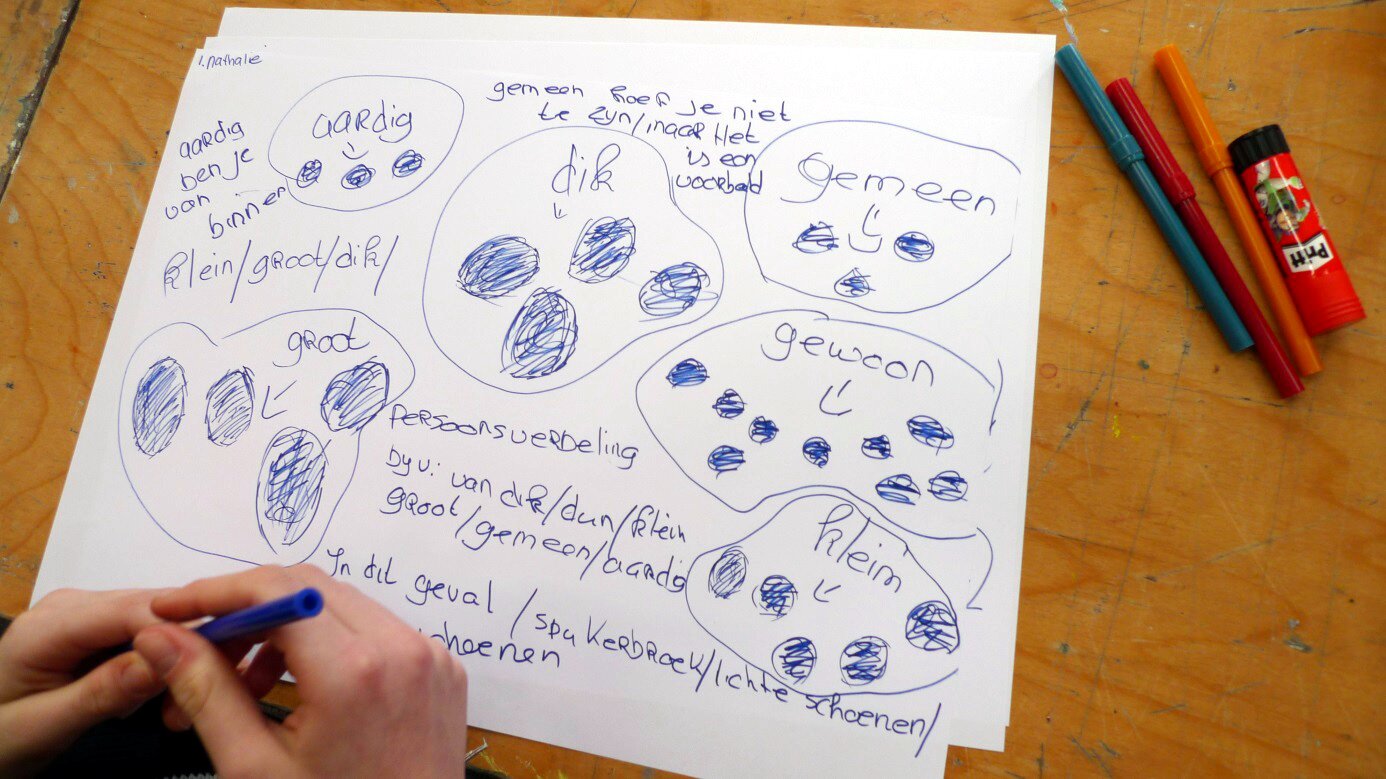 1. nathalie
aardig
aardig
ben je
van
binnen
klein/groot/dik/
gemeen hoef je niet
te zijn/maar Het
is een
voorbeeld
dik
gemeen
groot
gewoon
persoonsverdeling
bijv: van dik/dun/klein
groot/gemeen/aardig
klein
In dit geval / spijkerbroek/lichte schoenen/
schoenen
Pritt